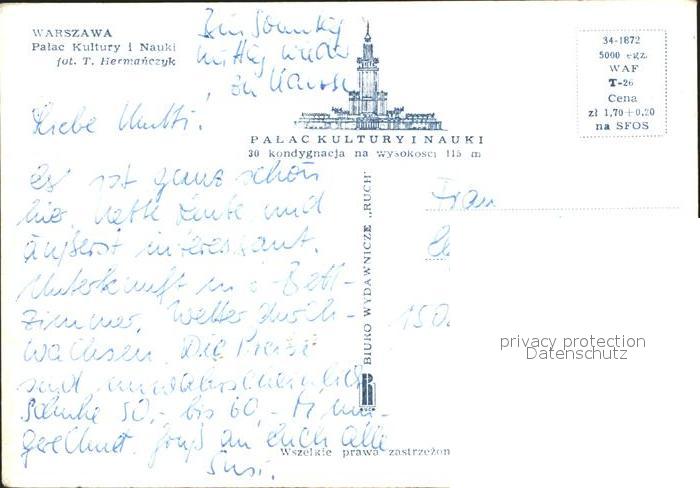 WARSZAWA
Pałac Kultury i Nauki
fot. T. Hermańczyk
Bin Sonntag
Mittag wieder
in
Liebe Mutti!
PAŁAC KULTURY I NAUKI
30 kondygnacja na wysokości 115 m
34-1872
5000 egz.
WAF
T-26
Cena
zł 1,70+0,20
na SFOS
Es ist ganz schön
hier, nette Leute und
äußerst interessant.
Unterkunft in Bett-
zimmer, Wetter durch-
wachsen. Die Preise
sind unwahrscheinlich
Schuhe 50,- bis 60,- M um-
gerechnet. Gruß an Euch alle
Susi.
BIURO WYDAWNICZE „RUCH"
Frau
150
privacy protection
Datenschutz
Wszelkie prawa zastrzeżon